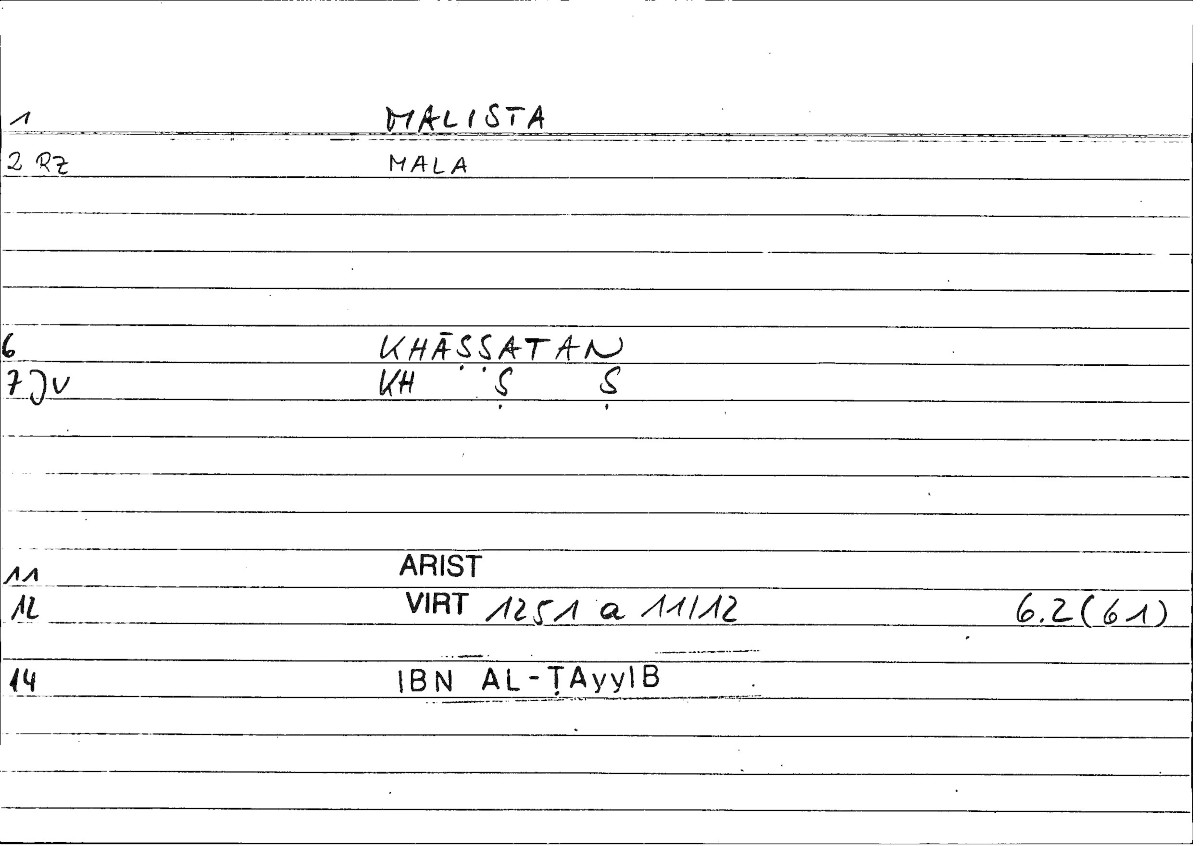 1 MALISTA
2 RZ MALA
6 KHĀṢṢATAN
7 JV KH Ṣ Ṣ
11 ARIST
12 VIRT 1251 a 11/12 6.2(61)
14 IBN AL-ṬAyyIB